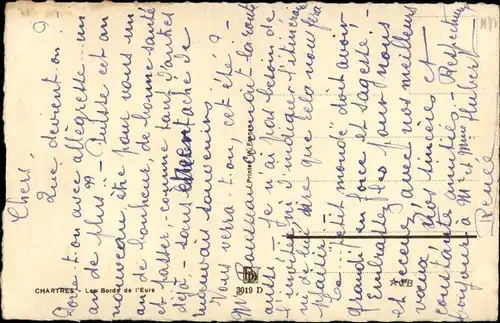 Chers,
Que devient-on ?
Porte-t-on avec allégresse un
an de plus ? - Puisse cet an
nouveau, être pour vous un
an de bonheur, de bonne santé
et passer, comme tant d'autres
déjà, sans tache de
mauvais souvenirs
Vous verra-t-on, cet été ?
Mr connait la route
aussi je n'ai pas besoin de
l'inviter ni d'indiquer l'itinéraire
ni de lui dire que cela nous fera
plaisir -
Ce petit monde doit avoir
grandi en force et sagesse -
Embrassez-les pour nous
et recevez avec nos meilleurs
vœux, nos sincères et
constantes amitiés - Respectueux
toujours à Mr et Mme Hubert -
Renée
CHARTRES - Les Bords de l'Eure
3019 D